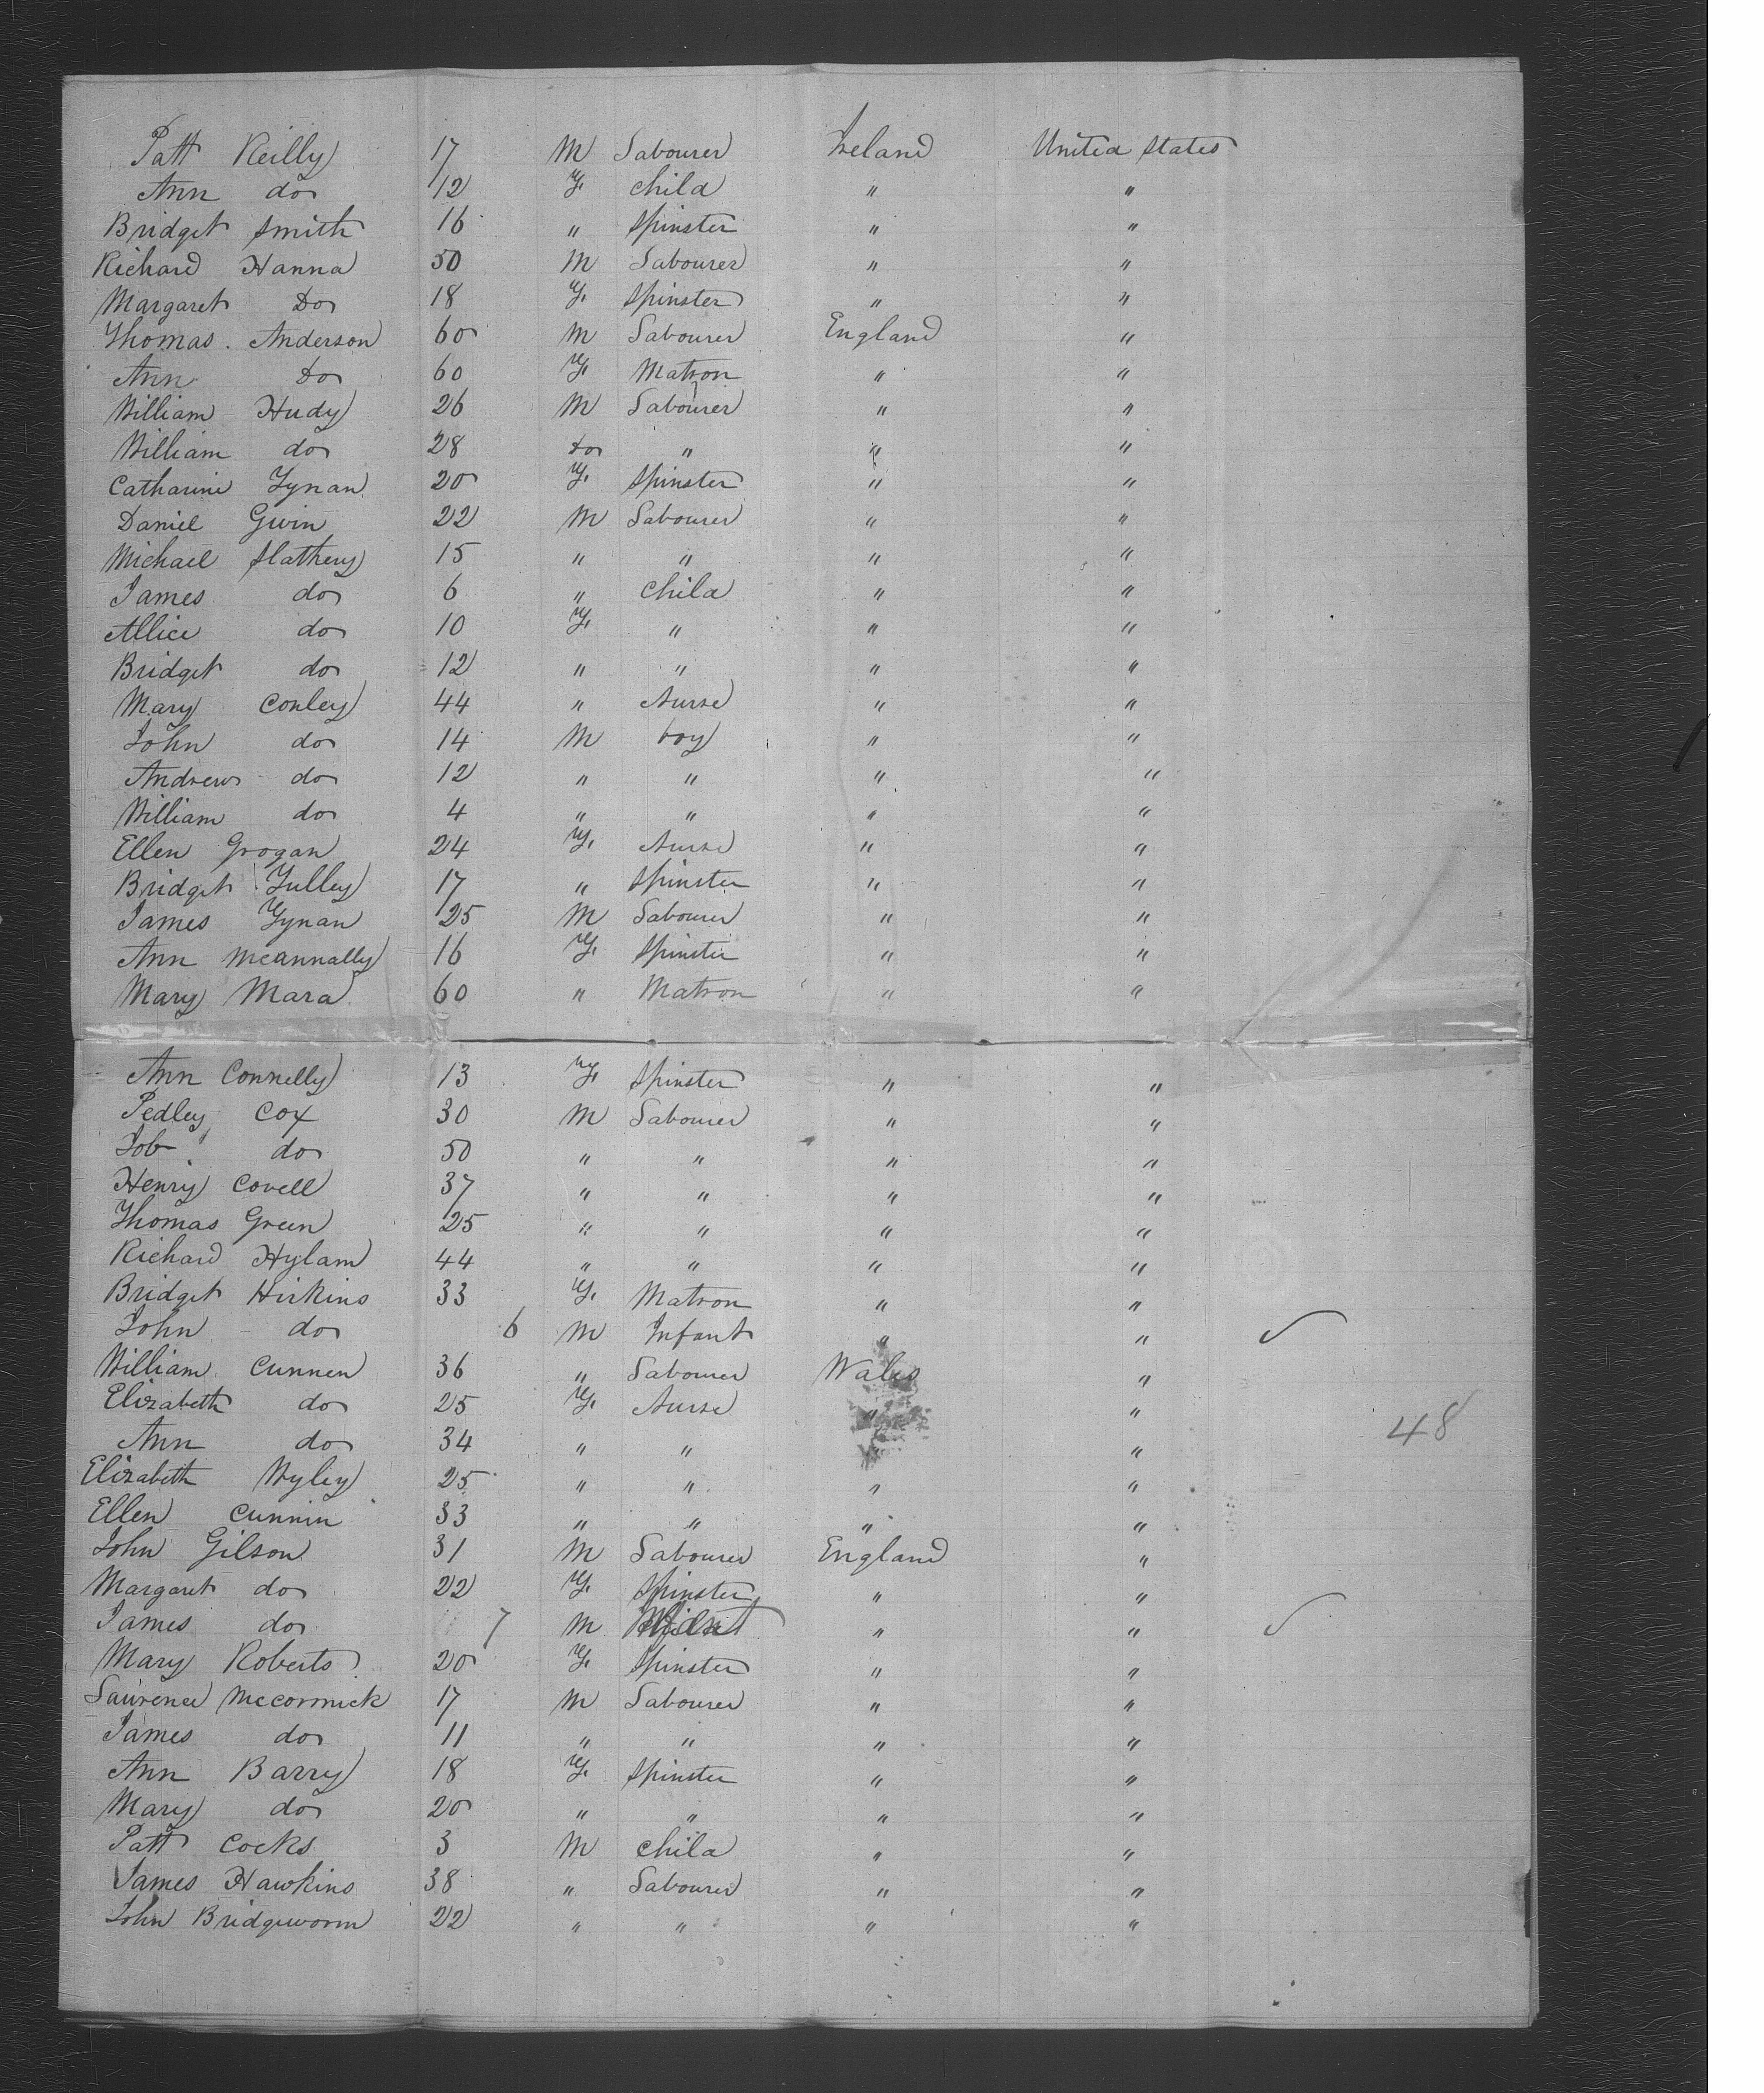 Patt Reilly 17 M Labourer Ireland United States
Ann do 12 F. Child " "
Bridget Smith 16 " Spinster " "
Richard Hanna 50 M Labourer " "
Margaret Do 18 F. Spinster " "
Thomas Anderson 60 M Labourer England "
Ann Do 60 F. Matron " "
William Hudy 26 M Labourer " "
William do 28 Do " " "
Catharine Fynan 20 F. Spinster " "
Daniel Gwin 22 M Labourer " "
Michael Slathery 15 " " " "
James do 6 " Child " "
Allice do 10 F. " " "
Bridget do 12 " " " "
Mary Conley 44 " Nurse " "
John do 14 M boy " "
Andrew do 12 " " " "
William do 4 " " " "
Ellen Grogan 24 F. Nurse " "
Bridget Fulley 17 " Spinster " "
James Fynan 25 M Labourer " "
Ann McAnnally 16 F. Spinster " "
Mary Mara 60 " Matron " "
Ann Connelly 13 F. Spinster " "
Pedley Cox 30 M Labourer " "
Job do 50 " " " "
Henry Covell 37 " " " "
Thomas Green 25 " " " "
Richard Hylam 44 " " " "
Bridget Hirkins 33 F. Matron " "
John do 6 M Infant " " ✓
William Cunnen 36 " Labourer Wales "
Elizabeth do 25 F. Nurse " "
48
Ann do 34 " " "
Elizabeth Wyley 25 " " " "
Ellen Cunnin 33 " " " "
John Gilson 31 M Labourer England "
Margaret do 22 F. Spinster " "
James do 7 M " " ✓
Mary Roberts 20 F. Spinster " "
Laurence McCormick 17 M Labourer " "
James do 11 " " " "
Ann Barry 18 F. Spinster " "
Mary do 20 " " " "
Patt Cocks 3 M Child " "
James Hawkins 38 " Labourer " "
John Bridgeworm 22 " " " "